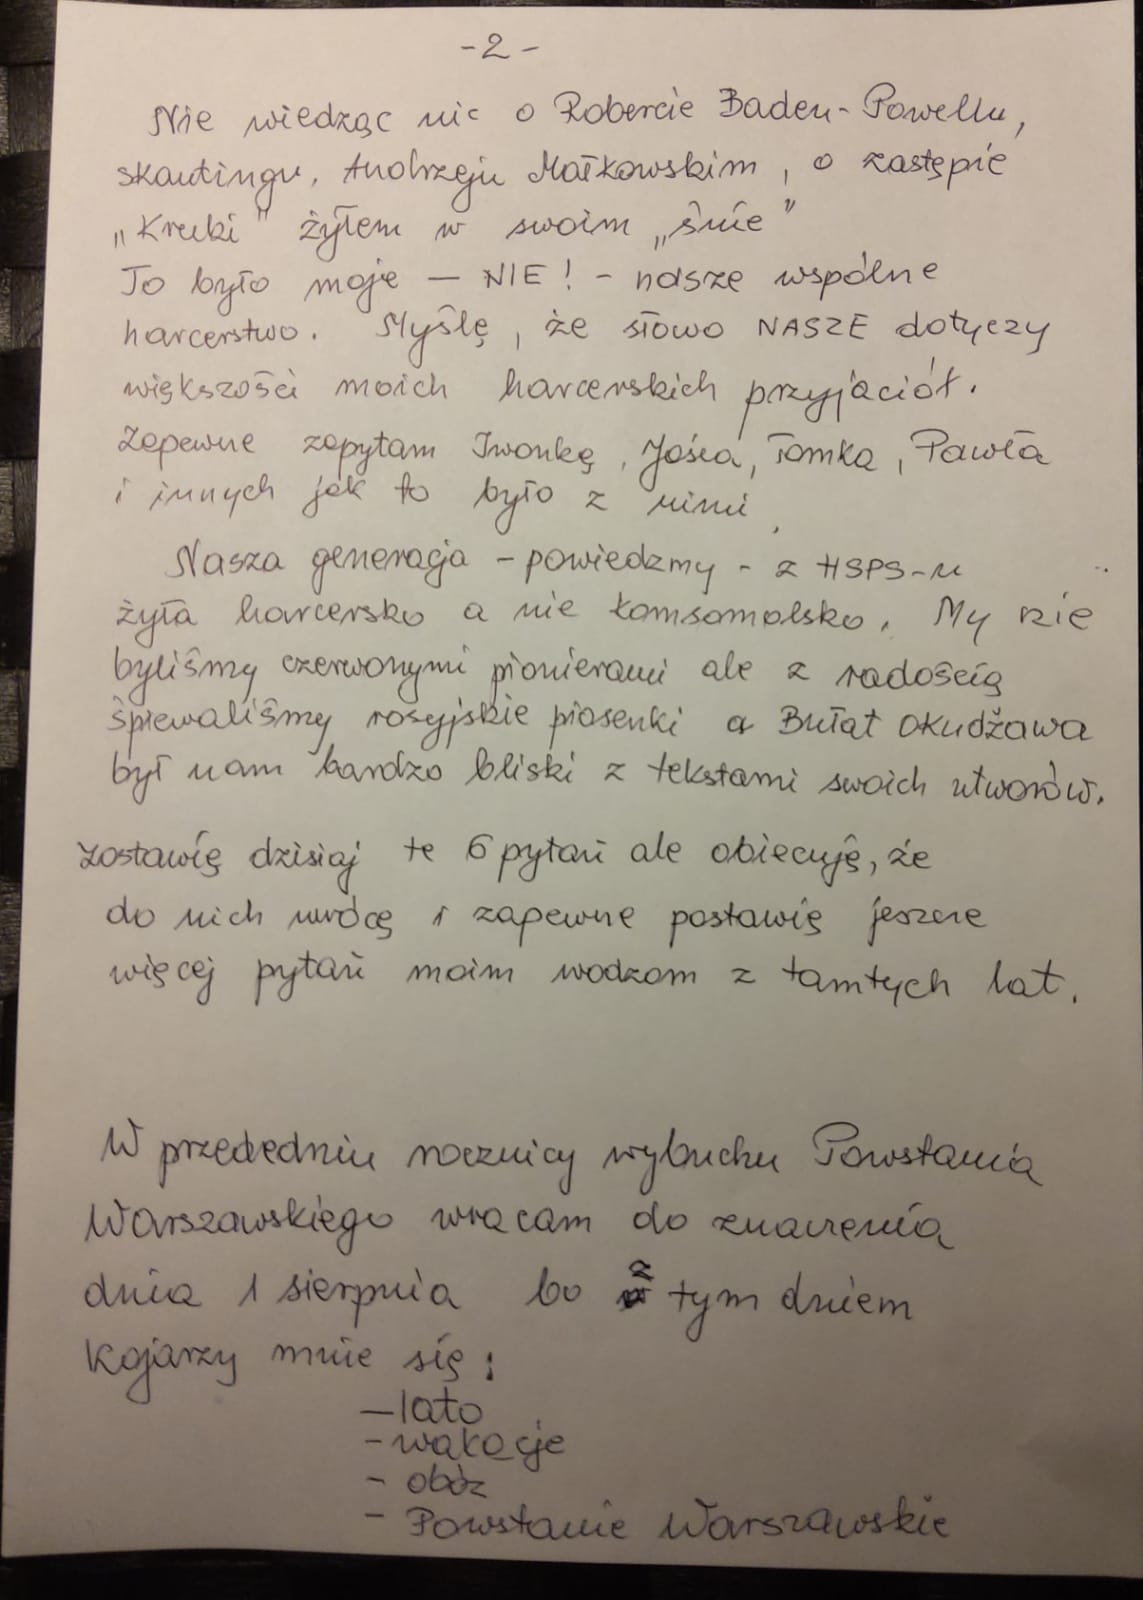 - 2 -
Nie wiedząc nic o Robercie Baden-Powellu,
skautingu, Andrzeju Małkowskim, o zastępie
„Kruki" żyłem w swoim „śnie"
To było moje — NIE! - nasze wspólne
harcerstwo. Myślę, że słowo NASZE dotyczy
większości moich harcerskich przyjaciół.
Zapewne zapytam Iwonkę, Jośka, Tomka, Pawła
i innych jak to było z nimi.
Nasza generacja - powiedzmy - z HSPS-u
żyła harcersko a nie komsomolsko. My nie
byliśmy czerwonymi pionierami ale z radością
śpiewaliśmy rosyjskie piosenki a Bułat Okudżawa
był nam bardzo bliski z tekstami swoich utworów.
Zostawię dzisiaj te 6 pytań ale obiecuję, że
do nich wrócę i zapewne postawię jeszcze
więcej pytań moim wodzom z tamtych lat.
W przededniu rocznicy wybuchu Powstania
Warszawskiego wracam do znaczenia
dnia 1 sierpnia bo z tym dniem
kojarzy mnie się:
— lato
- wakacje
- obóz
- Powstanie Warszawskie